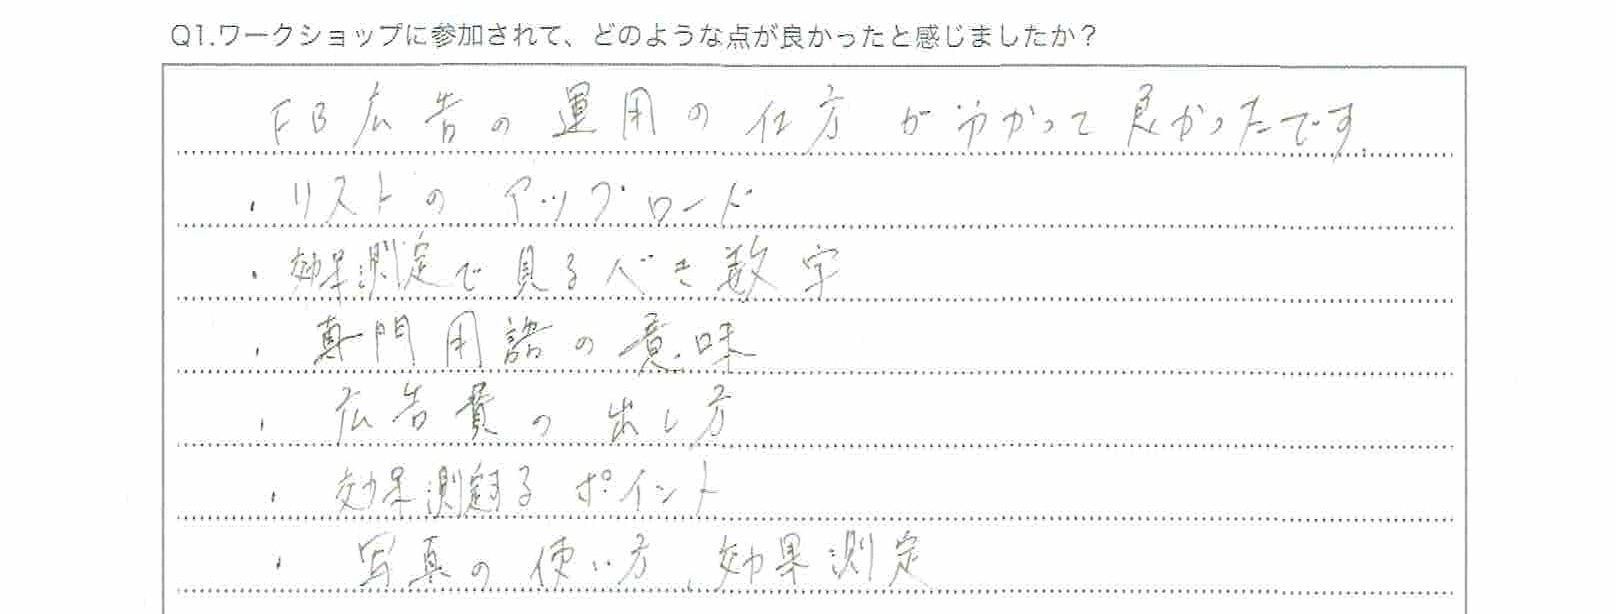 Q1.ワークショップに参加されて、どのような点が良かったと感じましたか？
FB広告の運用の仕方が分かって良かったです。
・リストのアップロード
・効果測定で見るべき数字
・専門用語の意味
・広告費の出し方
・効果測定するポイント
・写真の使い方、効果測定